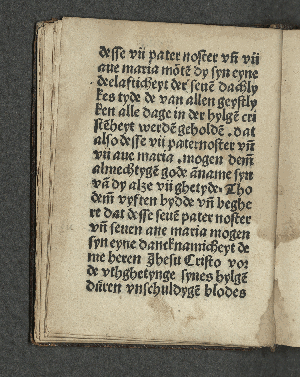 desse vii pater noster vñ vii
aue maria mõtẽ dy syn eyne
deelafticheyt der seuẽ dachly
kes tyde de van allen geystly
ken alle dage in der hylgẽ cri
stẽheyt werdẽ geholdẽ. dat
also desse vii paternoster vñ
vii aue maria. mogen dem̃
almechtygẽ gode ãname syn
vañ dy alze vii ghetyde. Tho
dem̃ vyften bydde vñ beghe
re dat desse seuẽ pater noster
vñ seuen aue maria mogen
syn eyne dancknamicheyt de
me heren Jhesu Cristo vor
de vthghetynge synes hylgẽ
dũren vnschuldygẽ blodes